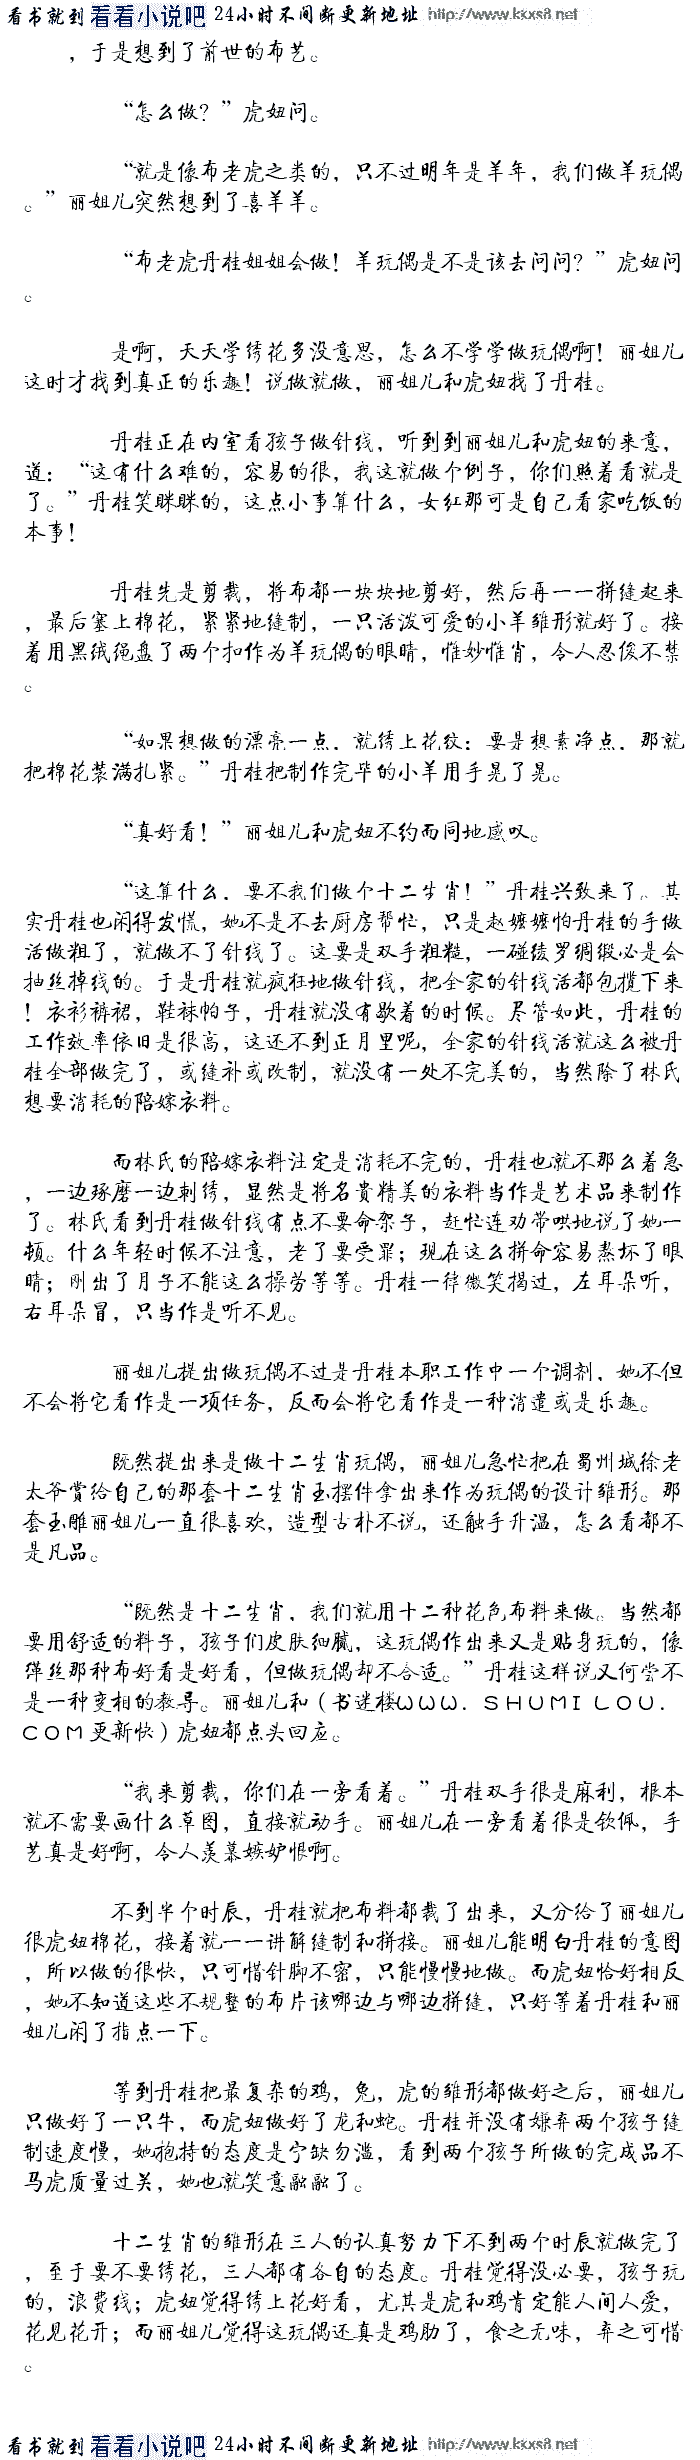 看书就到 看看小说吧 24小时不间断更新地址 http://www.kxxs8.net
，于是想到了前世的布艺。
“怎么做？”虎妞问。
“就是像布老虎之类的，只不过明年是羊年，我们做羊玩偶
。”丽姐儿突然想到了喜羊羊。
“布老虎丹桂姐姐会做！羊玩偶是不是该去问问？”虎妞问
。
是啊，天天学绣花多没意思，怎么不学学做玩偶啊！丽姐儿
这时才找到真正的乐趣！说做就做，丽姐儿和虎妞找了丹桂。
丹桂正在内室看孩子做针线，听到到丽姐儿和虎妞的来意，
道：“这有什么难的，容易的很，我这就做个例子，你们照着看就是
了。”丹桂笑眯眯的，这点小事算什么，女红那可是自己看家吃饭的
本事！
丹桂先是剪裁，将布都一块块地剪好，然后再一一拼缝起来
，最后塞上棉花，紧紧地缝制，一只活泼可爱的小羊雏形就好了。接
着用黑绒绳盘了两个扣作为羊玩偶的眼睛，惟妙惟肖，令人忍俊不禁
。
“如果想做的漂亮一点，就绣上花纹；要是想素净点，那就
把棉花装满扎紧。”丹桂把制作完毕的小羊用手晃了晃。
“真好看！”丽姐儿和虎妞不约而同地感叹。
“这算什么，要不我们做个十二生肖！”丹桂兴致来了。其
实丹桂也闲得发慌，她不是不去厨房帮忙，只是赵嬷嬷怕丹桂的手做
活做粗了，就做不了针线了。这要是双手粗糙，一碰绫罗绸缎必是会
抽丝掉线的。于是丹桂就疯狂地做针线，把全家的针线活都包揽下来
！衣衫裤裙，鞋袜帕子，丹桂就没有歇着的时候。尽管如此，丹桂的
工作效率依旧是很高，这还不到正月里呢，全家的针线活就这么被丹
桂全部做完了，或缝补或改制，就没有一处不完美的，当然除了林氏
想要消耗的陪嫁衣料。
而林氏的陪嫁衣料注定是消耗不完的，丹桂也就不那么着急
，一边琢磨一边刺绣，显然是将名贵精美的衣料当作是艺术品来制作
了。林氏看到丹桂做针线有点不要命架子，赶忙连劝带哄地说了她一
顿。什么年轻时候不注意，老了要受罪；现在这么拼命容易熬坏了眼
睛；刚出了月子不能这么操劳等等。丹桂一律微笑揭过，左耳朵听，
右耳朵冒，只当作是听不见。
丽姐儿提出做玩偶不过是丹桂本职工作中一个调剂，她不但
不会将它看作是一项任务，反而会将它看作是一种消遣或是乐趣。
既然提出来是做十二生肖玩偶，丽姐儿急忙把在蜀州城徐老
太爷赏给自己的那套十二生肖玉摆件拿出来作为玩偶的设计雏形。那
套玉雕丽姐儿一直很喜欢，造型古朴不说，还触手升温，怎么看都不
是凡品。
“既然是十二生肖，我们就用十二种花色布料来做。当然都
要用舒适的料子，孩子们皮肤细腻，这玩偶作出来又是贴身玩的，像
缂丝那种布好看是好看，但做玩偶却不合适。”丹桂这样说又何尝不
是一种变相的教导。丽姐儿和（书迷楼ＷＷＷ．ＳＨＵＭＩＬＯＵ．
ＣＯＭ更新快）虎妞都点头回应。
“我来剪裁，你们在一旁看着。”丹桂双手很是麻利，根本
就不需要画什么草图，直接就动手。丽姐儿在一旁看着很是钦佩，手
艺真是好啊，令人羡慕嫉妒恨啊。
不到半个时辰，丹桂就把布料都裁了出来，又分给了丽姐儿
很虎妞棉花，接着就一一讲解缝制和拼接。丽姐儿能明白丹桂的意图
，所以做的很快，只可惜针脚不密，只能慢慢地做。而虎妞恰好相反
，她不知道这些不规整的布片该哪边与哪边拼缝，只好等着丹桂和丽
姐儿闲了指点一下。
等到丹桂把最复杂的鸡，兔，虎的雏形都做好之后，丽姐儿
只做好了一只牛，而虎妞做好了龙和蛇。丹桂并没有嫌弃两个孩子缝
制速度慢，她抱持的态度是宁缺勿滥，看到两个孩子所做的完成品不
马虎质量过关，她也就笑意融融了。
十二生肖的雏形在三人的认真努力下不到两个时辰就做完了
，至于要不要绣花，三人都有各自的态度。丹桂觉得没必要，孩子玩
的，浪费线；虎妞觉得绣上花好看，尤其是虎和鸡肯定能人间人爱，
花见花开；而丽姐儿觉得这玩偶还真是鸡肋了，食之无味，弃之可惜
。
看书就到 看看小说吧 24小时不间断更新地址 http://www.kxxs8.net